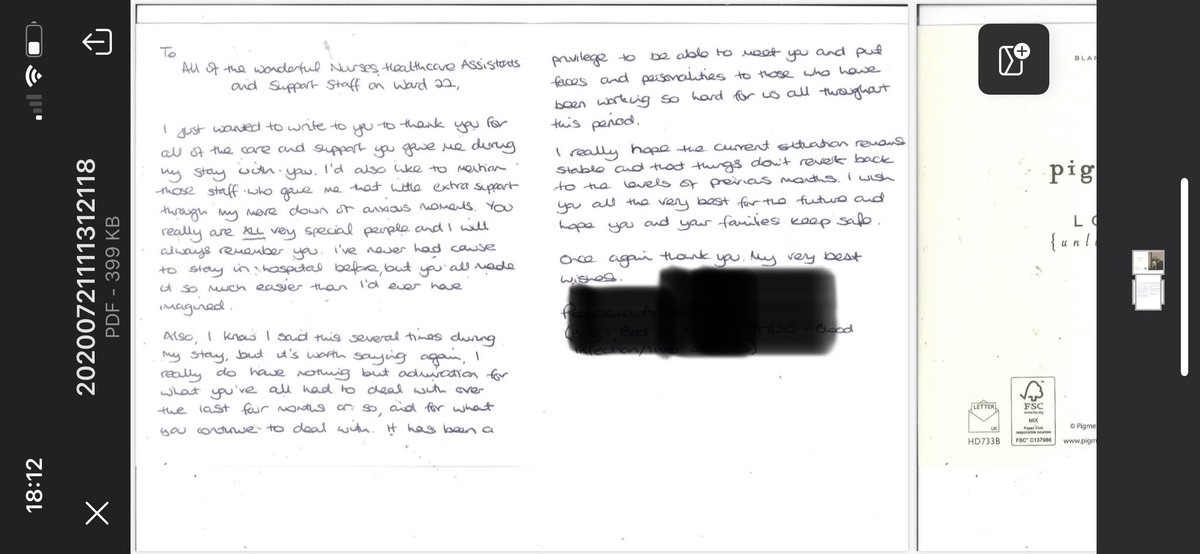 18:12
20200721111312118
PDF – 399 KB
To
All of the wonderful Nurses, Healthcare Assistants
and Support Staff on Ward 22,
I just wanted to write to you to thank you for
all of the care and support you gave me during
my stay with you. I'd also like to mention
those staff who gave me that little extra support
through my more down or anxious moments. You
really are ALL very special people and I will
always remember you. I've never had cause
to stay in hospital before, but you all made
it so much easier than I'd ever have
imagined.
Also, I know I said this several times during
my stay, but it's worth saying again, I
really do have nothing but admiration for
what you've all had to deal with over
the last four months or so, and for what
you continue to deal with. It has been a
privilege to be able to meet you and put
faces and personalities to those who have
been working so hard for us all throughout
this period.
I really hope the current situation remains
stable and that things don't revert back
to the levels of previous months. I wish
you all the very best for the future and
hope you and your families keep safe.
Once again thank you. My very best
wishes.
BLAN
pig
LO
{unl
LETTER
UK
HD733B
FSC
www.fsc.org
MIX
Paper from
responsible sources
FSC® C137986
© Pigme
www.pigm